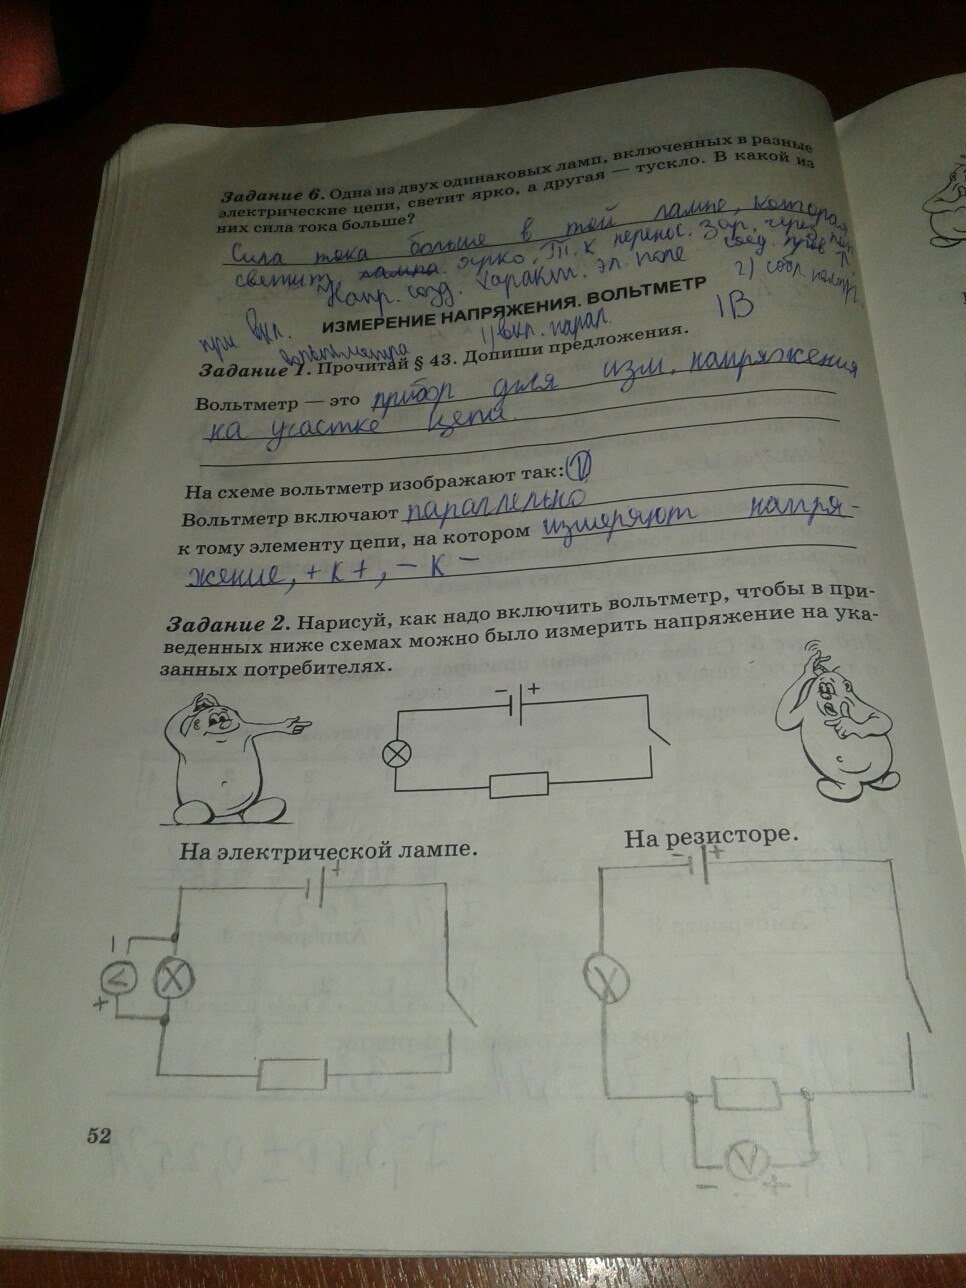 Задание 6. Одна из двух одинаковых ламп, включенных в разные
электрические цепи, светит ярко, а другая — тускло. В какой из
них сила тока больше?
Сила тока больше в той лампе, которая
светит лампа ярко. Т. к перенос. Зар. через
Напр. созд. характ. эл. поле
2) собл. поляр.
ИЗМЕРЕНИЕ НАПРЯЖЕНИЯ. ВОЛЬТМЕТР
при вкл. вольтметра 1) вкл. парал. 1В
Задание 1. Прочитай § 43. Допиши предложения.
Вольтметр — это прибор для изм. напряжения
на участке цепи.
На схеме вольтметр изображают так: V
Вольтметр включают параллельно
к тому элементу цепи, на котором измеряют напря-
жение, + к +, – к –
Задание 2. Нарисуй, как надо включить вольтметр, чтобы в при-
веденных ниже схемах можно было измерить напряжение на ука-
занных потребителях.
– +
На электрической лампе.
На резисторе.
+
– +
–
V
+
V
– +
52